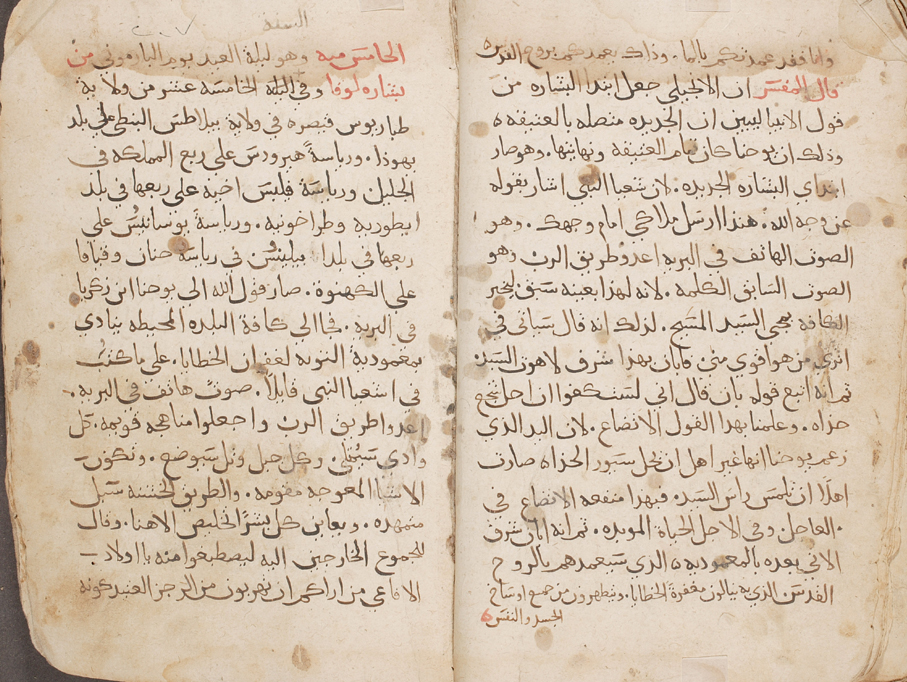 وانا فقد عمدتكم بالما. وذاك يعمدكم بروح القدس
قال المفسر ان الانجيلي جعل ابتدا البشاره من
قول الانبيا ليبين ان الجديده متصله بالعتيقه
وذلك ان يوحنا كان تمام العتيقه ونهايتها. وهو صار
ابتداي البشاره الجديده. لان شعيا النبي اشار بقوله
عن وجه الله. هندا ارسل ملاكي امام وجهك. وهو
الصوت الهاتف في البريه اعدو طريق الرب وهو
الصوت السابق الكلمه. لانه لهذا بعينه سبق ليخبر
الكافة بمجي السيد المسيح. لذلك انه قال سياتي في
اثري من هو اقوي مني فابان بهذا شرف لاهوت السيد
ثم انه اتبع قوله بان قال اني لست كفوا ان احل
حذاه. وعلمنا بهذا القول الاتضاع. لان اليد الذي
زعم يوحنا انها غير اهل ان تحل سيور الحذاه صارت
اهلا ان تلمس راس السيد. فبهذا منفعه الاتضاع في
العاجل وفي الاجل الحياة الموبده. ثم انه ابان شرف
الاتي بعده بالمعموديه الذي سيعمدهم بالروح
القدس الذي به ينالون مغفرة الخطايا. ويتطهرون من جميع اوساخ
الجسد والنفس
السنه
الخامس ميه وهو ليلة العيد يوم البارموني من
بشاره لوقا وفي البلة الخامسه عشر من ولاية
طباريوس قيصره في ولاية بيلاطس البنطي علي بلد
يهوذا. ورياسة هيرودس علي ربع المملكه في
الجليل ورياسة فيلبس اخيه علي ربعها في بلد
ايطوريه وطراخونيه. ورياسة لوسانيس علي
ربعها في بلد ابيلينس في رياسة حنان وقيافا
علي الكهنوة. صار قول الله الي يوحنا ابن زكريا
في البريه. فجا الي كافة البلده المحيطه ينادي
بمعمودية التوبه لغفران الخطايا. علي ما كتب
في اشعيا النبي قايلا. صوت هاتف في البريه.
اعدوا طريق الرب واجعلوا مناهجه قويمه. كل
وادي سيمتلي. وكل جبل وتل سيوضع. وتكون
الاشيا المعوجه مقومه. والطريق الخشنه سبل
متمهده. ويعاين كل بشر الخليص الاهنا. وقال
للجموع الخارجين اليه ليصطبغوا منه يا اولاد
الافاعي من اراكم ان تهربون من الرجز العتيد كونه